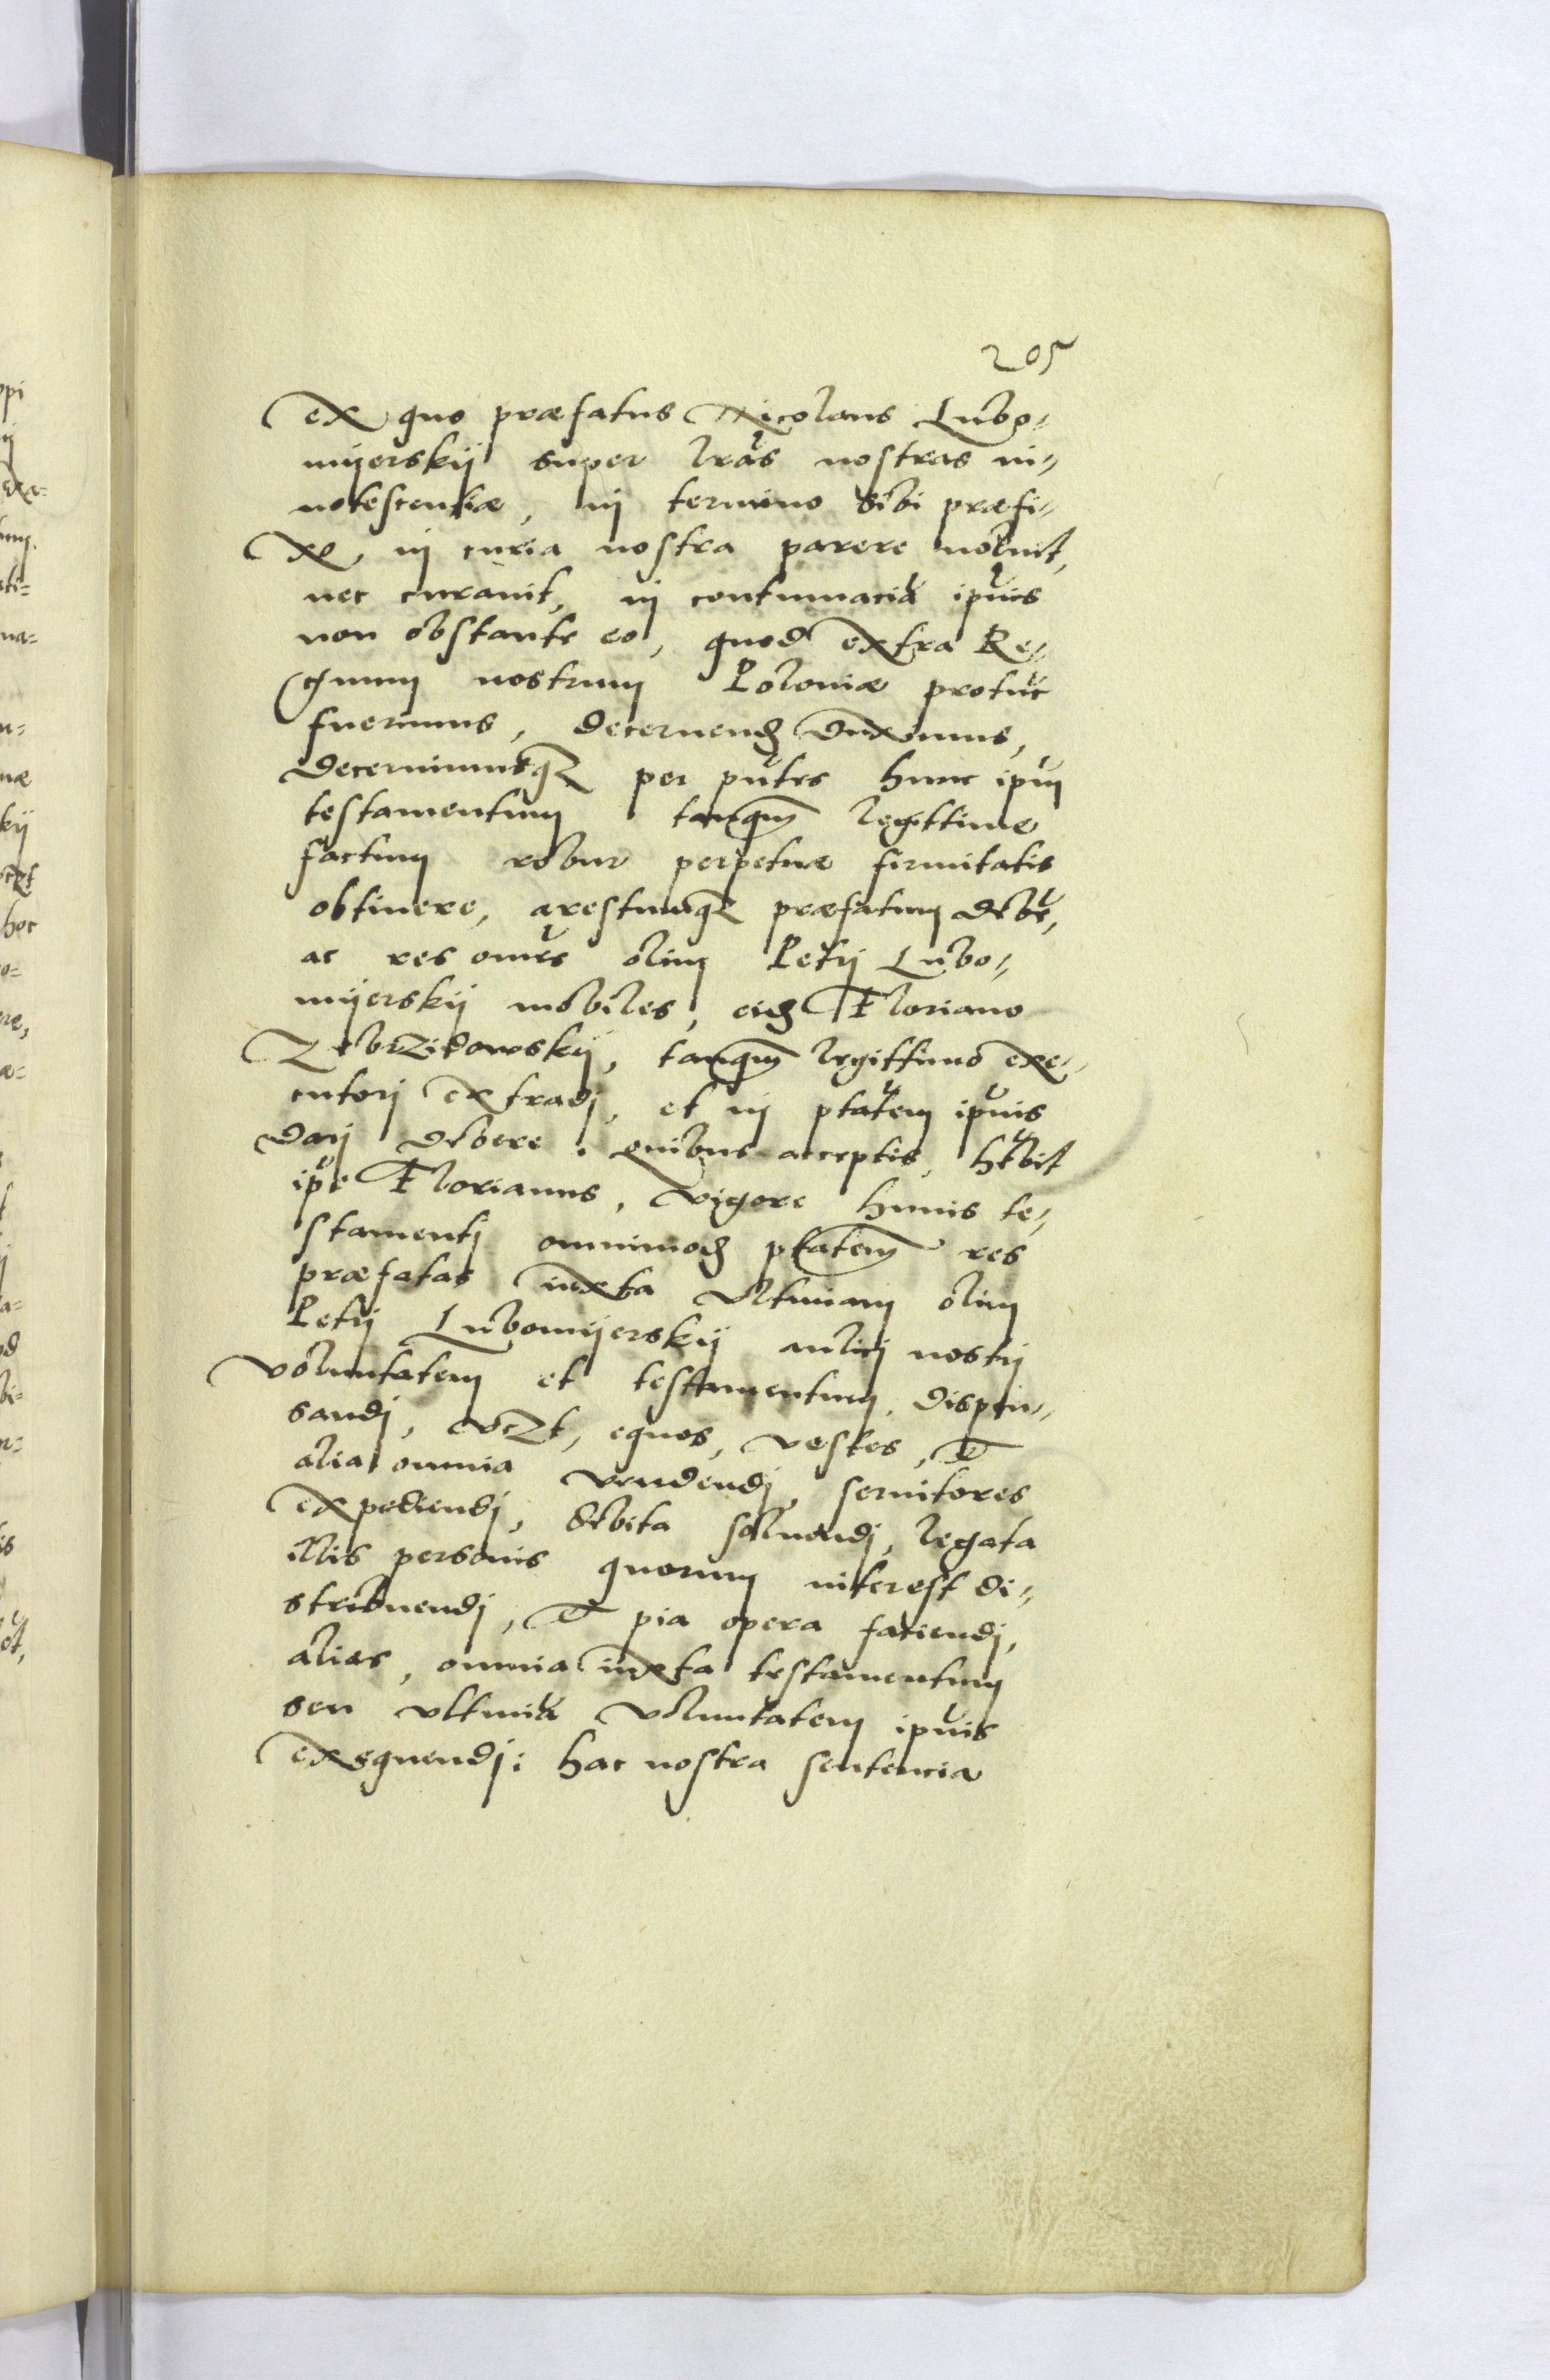 205
ex quo præfatus Nicolaus Lubo-
myerskÿ super lr̃as nostras in-
notescentiæ, in termino sibi præfi-
xo, in curia nostra parere noluit,
nec curauit, in contumaciã ip̃ius
non obstante eo, quod extra Re-
gnum nostrum Poloniæ protũc
fuerimus, decernendũ duximus,
decernimusq₃ per pñtes hunc ip̃m
testamentum tanq̃m legittime
factum robur perpetuæ firmitatis
obtinere, arestumq₃ præfatum debẽ,
ac res om̃es olim Petrj Lubo-
mÿerskÿ mobiles, eid. Floriano
Zebrzidowskÿ, tanq̃m legittimo exe-
cutorj extradj, et in p̃tatem ip̃ius
darj debere: quibus acceptis, hẽbit
ip̃e Florianus, vigore huius te-
stamentj omnimod. p̃tatem res
præfatas iuxta vltimam olim
Petrj Lubomÿerskÿ aulicj nostrj
voluntatem et testamentum, dispen-
sandj, vcz̃t, equos, vestes, &
alia omnia vendendj, seruitores
expediendj, debita soluendj, legata
illis personis quorum interest di-
stribuendj, & pia opera faciendj,
alias, omnia iuxta testamentum
seu vltimã voluntatem ip̃ius
exequendj: hac nostra sentencia